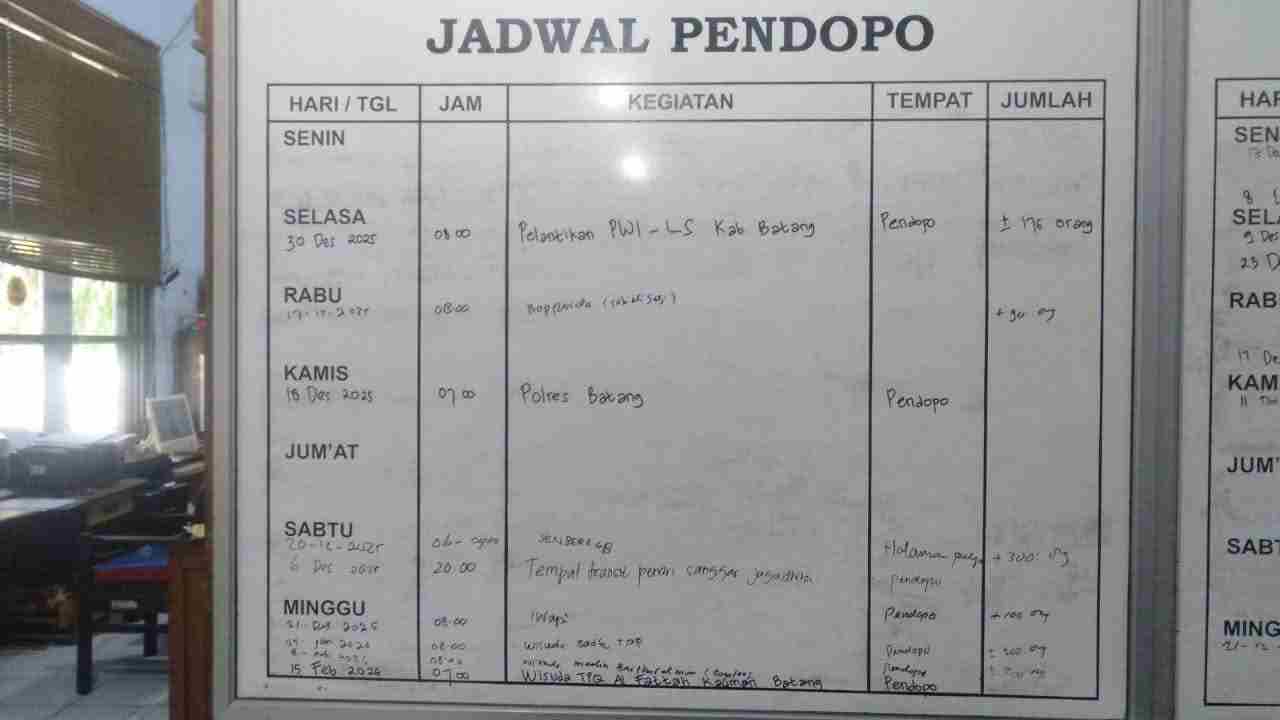 JADWAL PENDOPO
HARI / TGL JAM KEGIATAN TEMPAT JUMLAH
SENIN
SELASA
30 Des 2025 08 00 Pelantikan PWI - LS Kab Batang Pendopo ± 176 orang
RABU
17-12-2025 08.00
KAMIS
18 Des 2025 07.00 Polres Batang Pendopo
JUM'AT
SABTU
20-12-2025 + 300 org
6 Des 2025 20.00 Tempat transit penari sanggar pendopo
MINGGU
21- 2025 08.00 IWapi Pendopo + 100 org
2026 08.00 wisuda Pendopo ± 200 org
08.00 wisuda Pendopo
15 Feb 2026 07.00 Wisuda TPQ Al Fattah Kauman Batang Pendopo
HAR
SEN
SELA
9 Des
23 D
RAB
17 De
KAM
11
JUM'
SABT
MING
21-12-